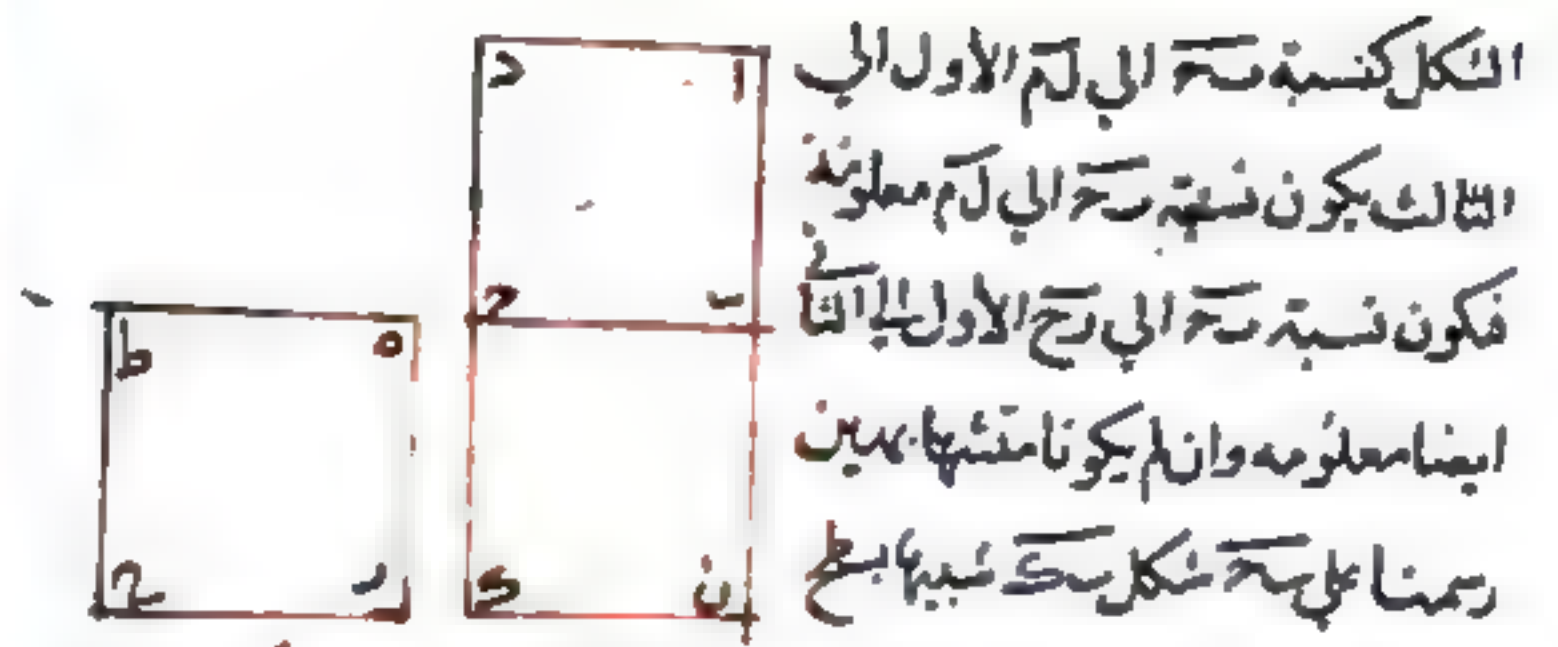 الشكل كنسبة بح الي لم الأول الي
الثالث يكون نسبة بح الي لم معلومة
فكون نسبة بح الي رح الأول الي الثاني
ايضا معلومه وان لم يكونا متشابهين
رسمنا علي بح شكل بي شبيها بسطح
د ا
ح ب
ط ه
ح ر
ي ن